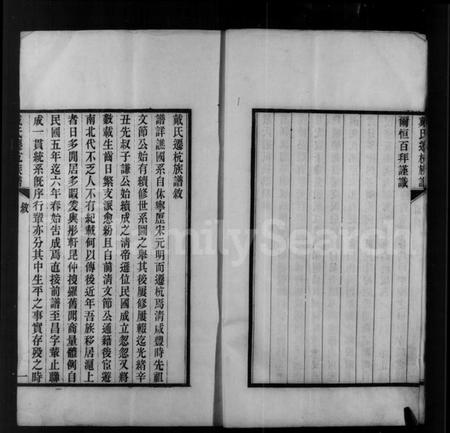 戴氏遷杭族譜
爾恒百拜謹識
戴氏遷杭族譜敘
譜詳譙國系自休寧歷宋元明而遷杭爲清咸豐時先祖
文節公始有續修世系圖之舉其後屢修屢輟迄光緒辛
丑先叔子謙公始續成之清帝遜位民國成立忽忽又將
數載生齒日繁支派愈紛且自前清文節公通籍後宦遊
南北代不乏人不有紀載何以傳後近年吾族移居滬上
者日多閒居多暇爰與彤軒昆仲搜羅舊聞商量體例自
民國五年迄六年春始告成焉直接前譜至昌字輩止聯
成一貫統系旣序行輩亦分其中生平之事實存歿之時
戴氏遷杭族譜
敘
一
FamilySearch